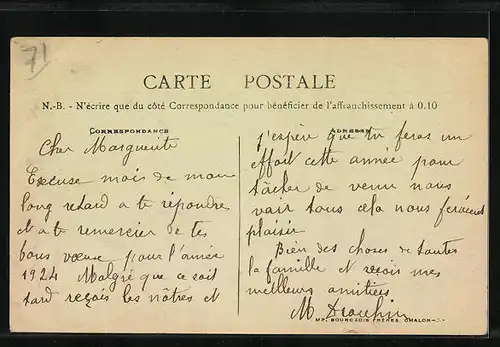 71
CARTE POSTALE
N.-B. - N'écrire que du côté Correspondance pour bénéficier de l'affranchissement à 0.10
CORRESPONDANCE
Cher Marguerite
Excuse mois de mon
long retard a te répondre
et a te remercier de tes
bons vœux pour l'année
1924 Malgré que ce soit
tard reçois les nôtres et
ADRESSE
j'espère que tu feras un
effort cette année pour
tâcher de venir nous
voir tous cela nous feraient
plaisir
Bien des choses de toutes
la famille et reçois mes
meilleurs amitiées
M.
MP. BOURGEOIS FRÈRES, CHALON-